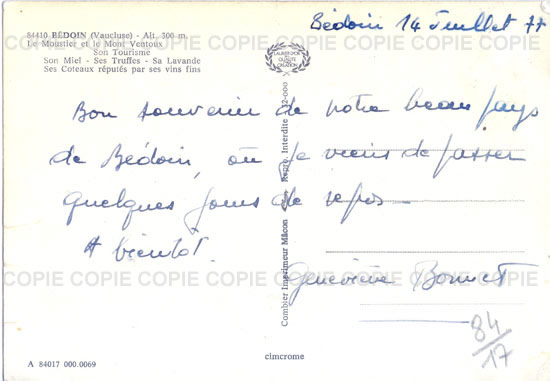 Bédoin 14 Juillet 77
84410 BÉDOIN (Vaucluse) - Alt. 300 m.
Le Moustier et le Mont Ventoux
Son Tourisme
Son Miel - Ses Truffes - Sa Lavande
Ses Coteaux réputés par ses vins fins
COPIE COPIE COPIE COPIE COPIE COPIE COPIE
Bon souvenir de notre beau pays
de Bédoin, où je viens de passer
quelques jours de repos
A bientôt.
COPIE COPIE COPIE COPIE COPIE COPIE COPIE
Geneviève Bonnet
Combier Imprimeur Mâcon
Repro. Interdite
84/17
cimcrome
A 84017 000.0069